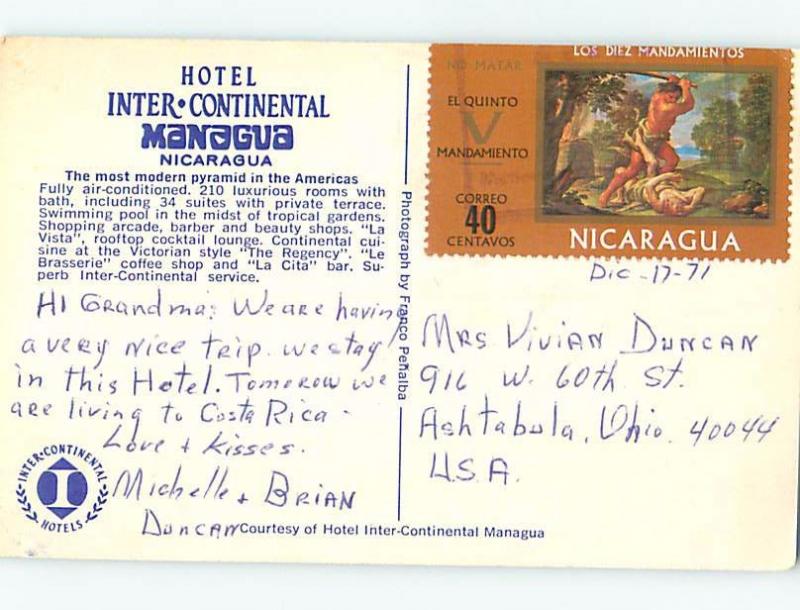 HOTEL
INTER•CONTINENTAL
MANAGUA
NICARAGUA
The most modern pyramid in the Americas
Fully air-conditioned. 210 luxurious rooms with
bath, including 34 suites with private terrace.
Swimming pool in the midst of tropical gardens.
Shopping arcade, barber and beauty shops. "La
Vista", rooftop cocktail lounge. Continental cui-
sine at the Victorian style "The Regency". "Le
Brasserie" coffee shop and "La Cita" bar. Su-
perb Inter-Continental service.
HI Grandma; We are having
a very nice trip. we stay
in this Hotel. Tomorow we
are living to Costa Rica -
Love + Kisses.
Michelle + BRIAN
DUNCAN
INTER-CONTINENTAL
I
HOTELS
Courtesy of Hotel Inter-Continental Managua
Photograph by Franco Peñalba
LOS DIEZ MANDAMIENTOS
NO MATAR
EL QUINTO
V
MANDAMIENTO
CORREO
40
CENTAVOS
NICARAGUA
Dic -17-71
MRS VIVIAN DUNCAN
916 W. 60th St.
Ashtabula, Ohio. 40044
U.S.A.